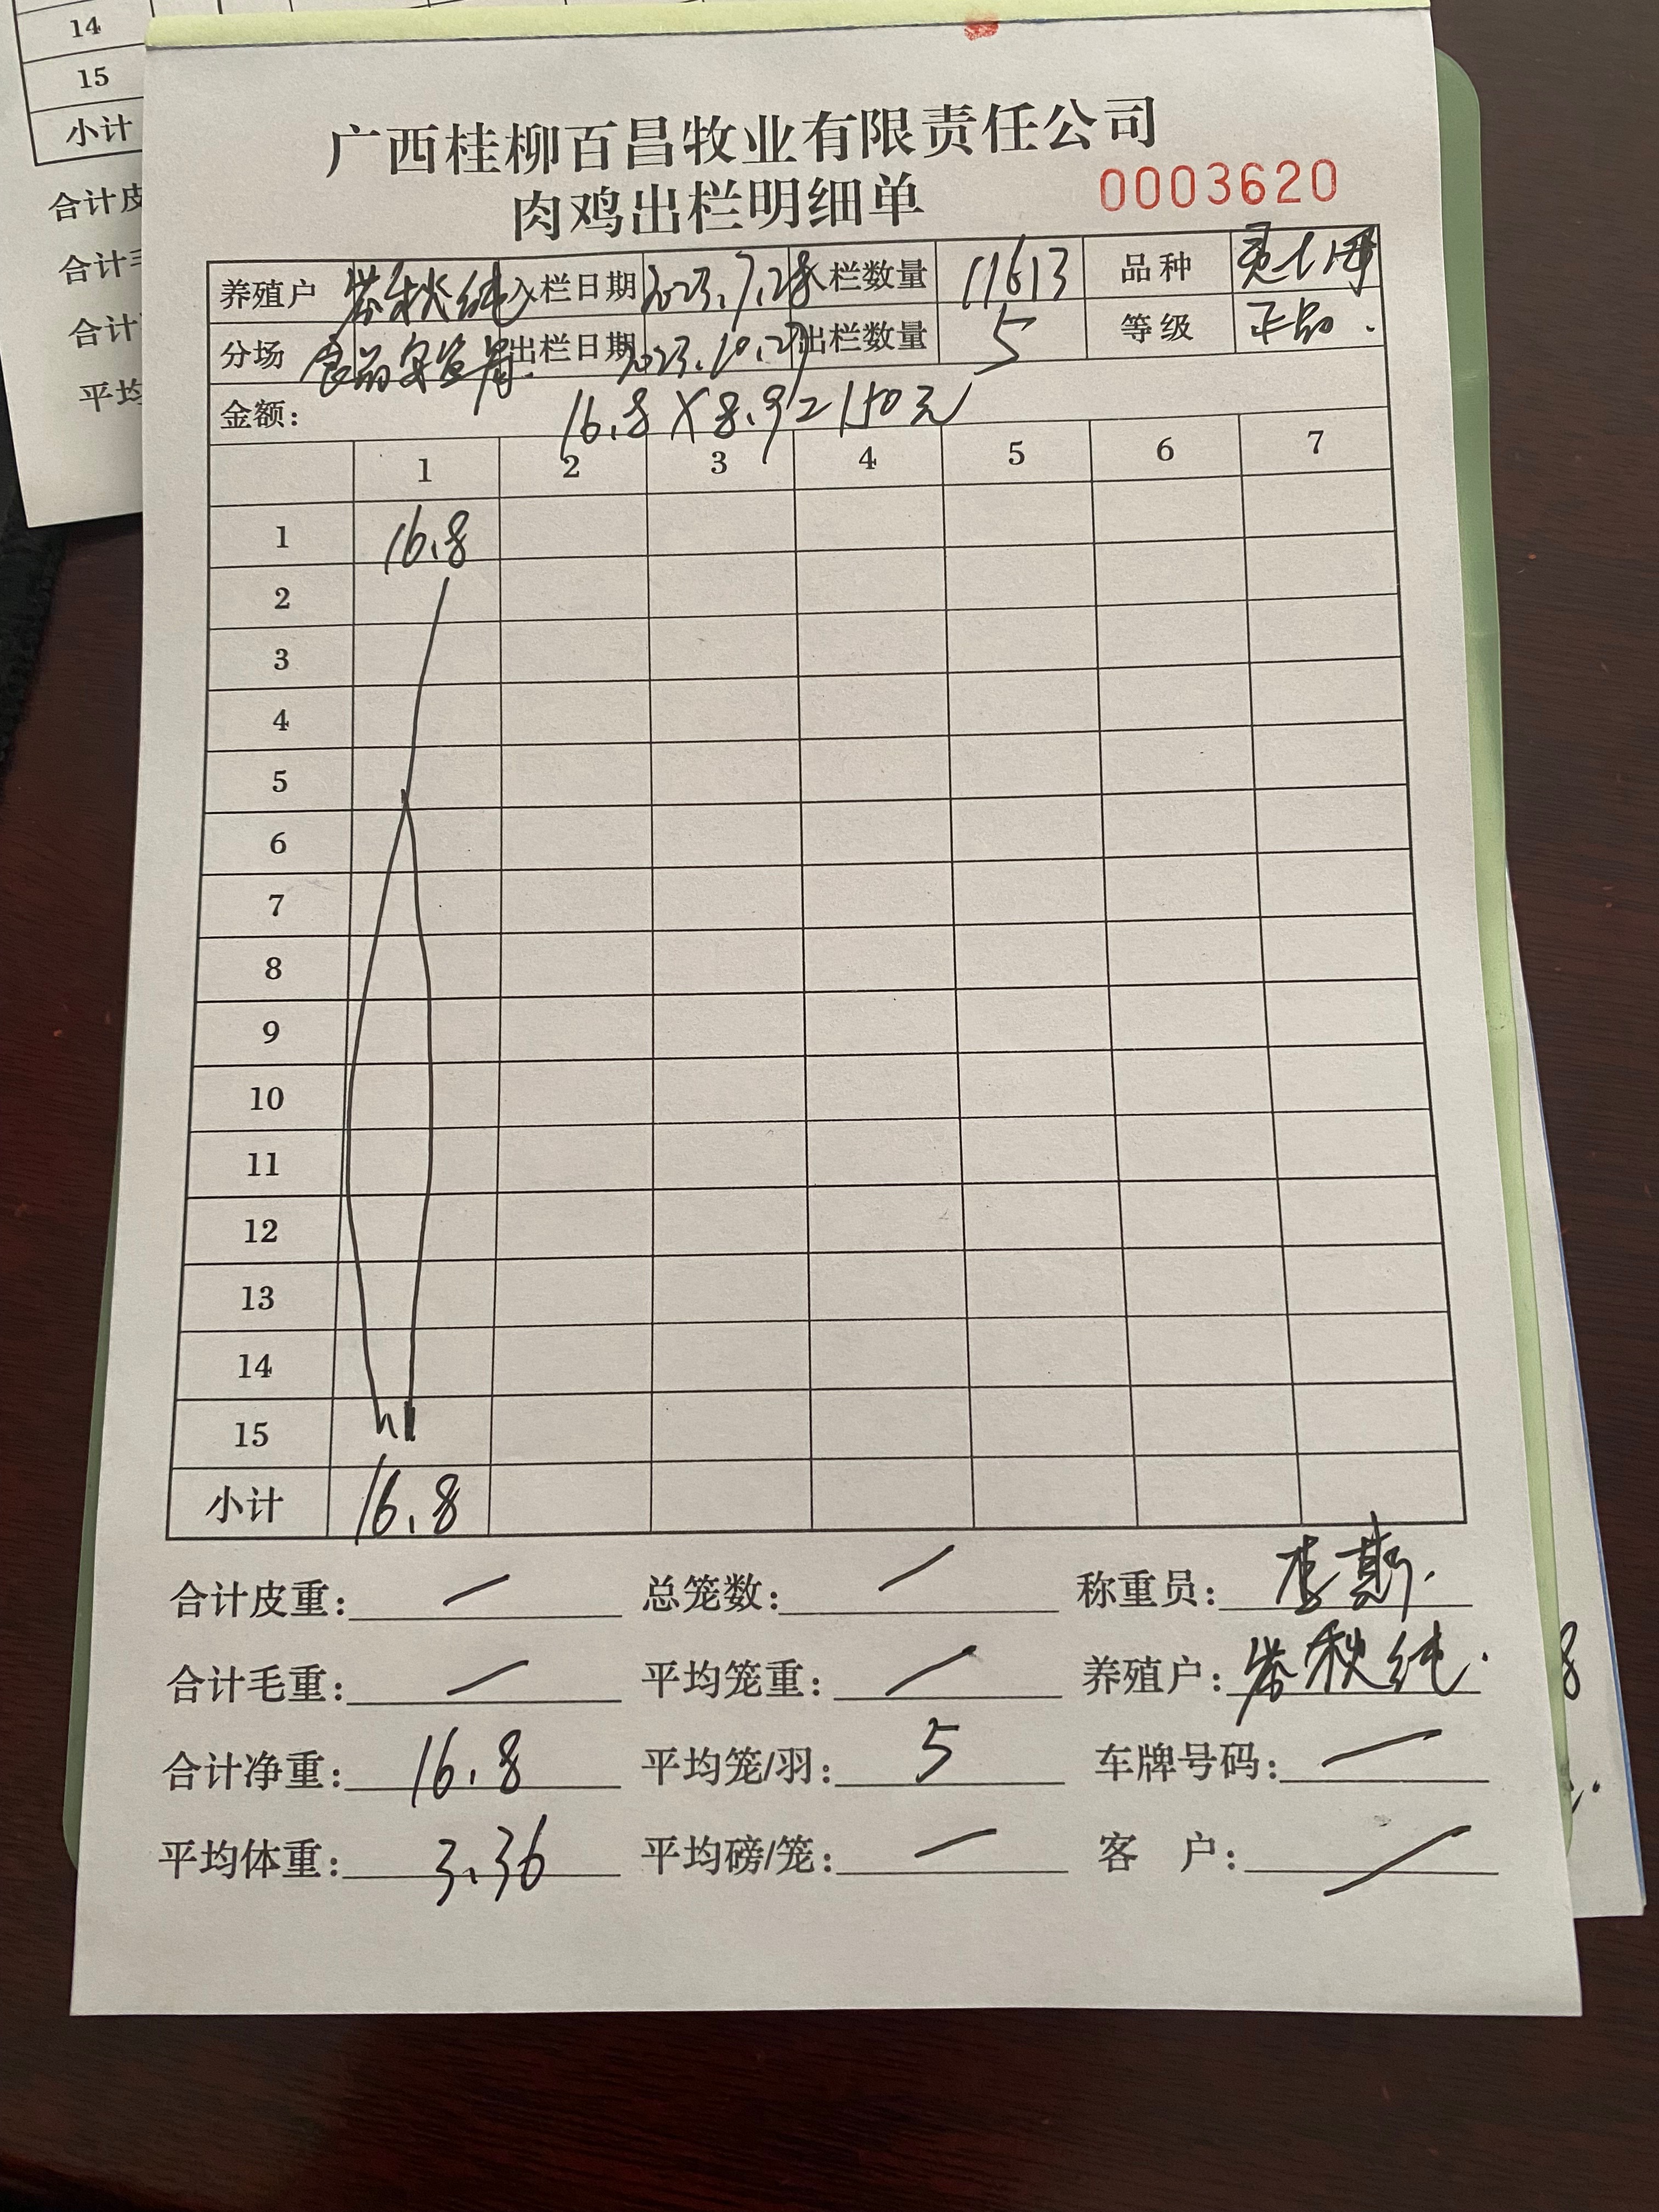 14
15
小计
合计皮
合计
合计
平均
广西桂柳百昌牧业有限责任公司
肉鸡出栏明细单
0003620
养殖户 秋纯 入栏日期 2023.7.28 入栏数量 11613 品种
分场 食品 出栏日期 2023.10.27 出栏数量 5 等级 正品.
金额: 16.8×8.9=150元
1 2 3 4 5 6 7
1 16.8
2
3
4
5
6
7
8
9
10
11
12
13
14
15
小计 16.8
合计皮重: 总笼数: 称重员: 李斯.
合计毛重: 平均笼重: 养殖户: 秋纯.
合计净重: 16.8 平均笼/羽: 5 车牌号码:
平均体重: 3.36 平均磅/笼: 客 户:
8